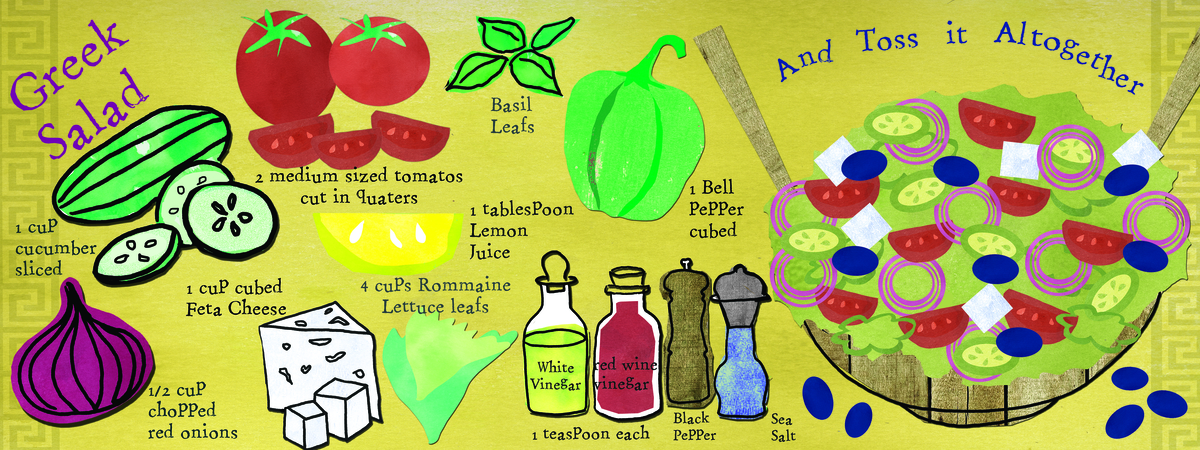 Greek
Salad
1 cuP
cucumber
sliced
2 medium sized tomatos
cut in quaters
Basil
Leafs
1 Bell
PePPer
cubed
1 tablesPoon
Lemon
Juice
1 cuP cubed
Feta Cheese
4 cuPs Rommaine
Lettuce leafs
1/2 cuP
choPPed
red onions
White
Vinegar
red wine
vinegar
1 teasPoon each
Black
PePPer
Sea
Salt
And Toss it Altogether